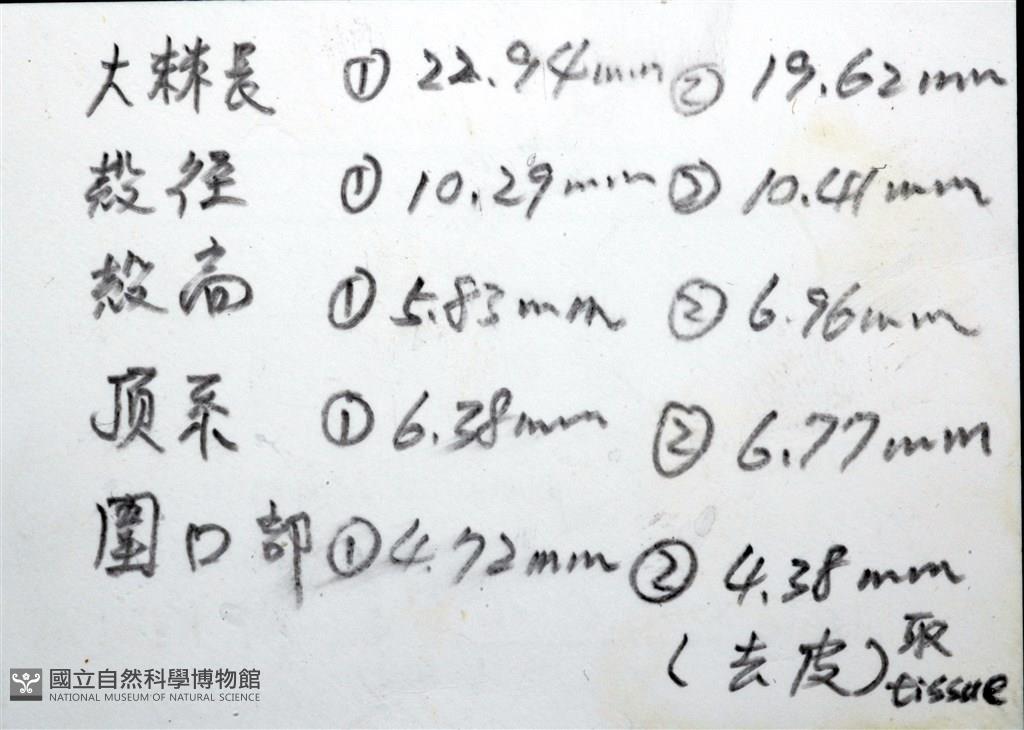 大棘長 ① 22.94mm ② 19.62mm
殼徑 ① 10.29mm ② 10.41mm
殼高 ① 5.83mm ② 6.96mm
顶系 ① 6.38mm ② 6.77mm
圍口部 ① 4.72mm ② 4.38mm
(去皮) 取
tissue
國立自然科學博物館
NATIONAL MUSEUM OF NATURAL SCIENCE